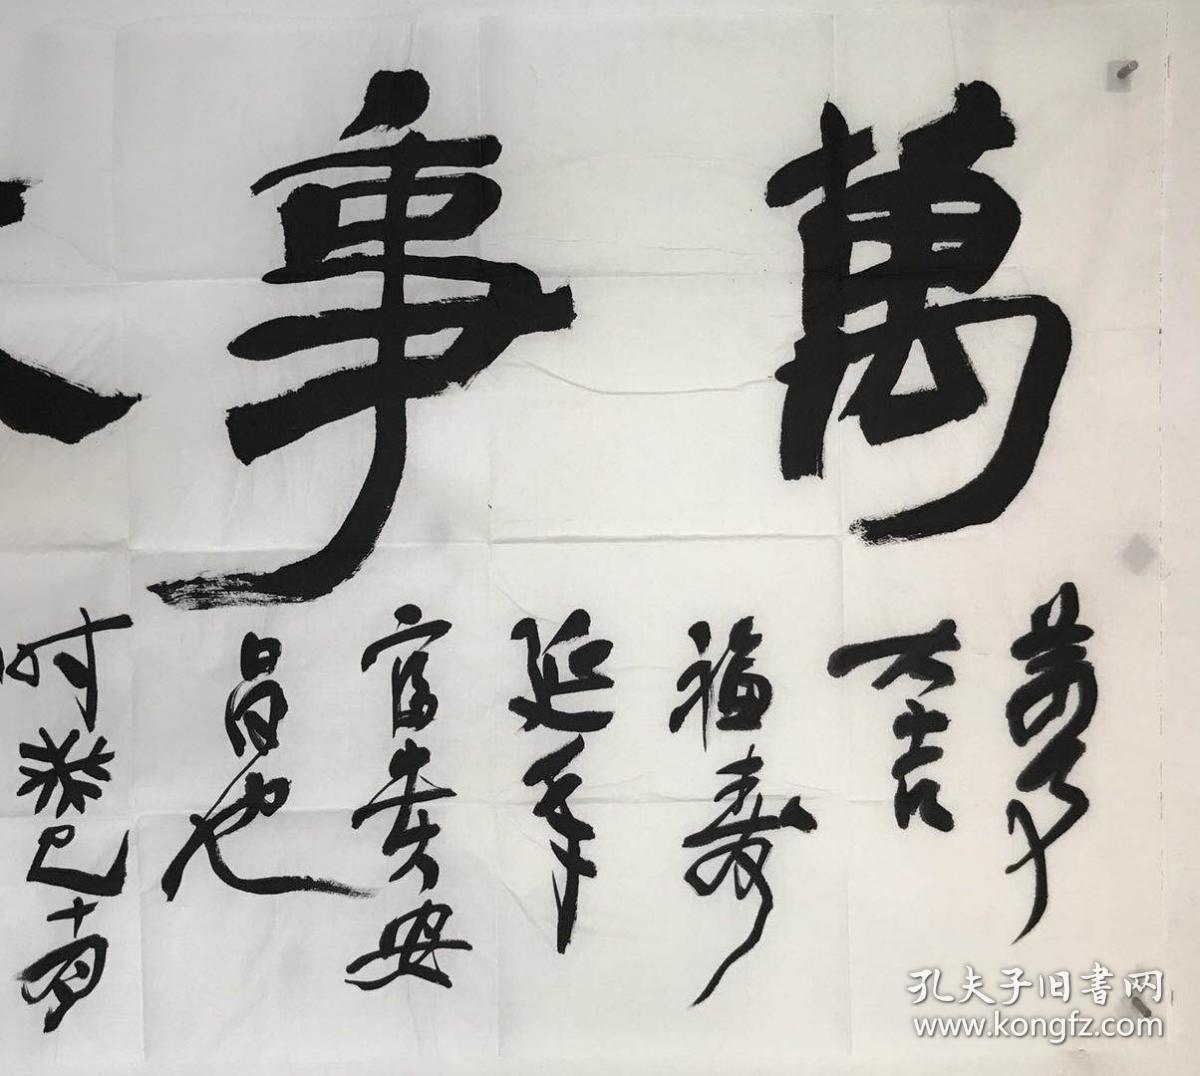 萬事
萬事
大吉
福壽
延年
富貴安
昌也
时癸巳十月
孔夫子旧书网
www.kongfz.com